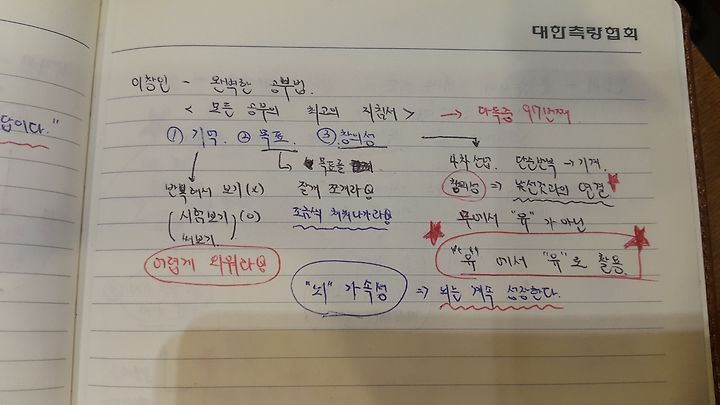 대한측량협회
답이다."
이창인 - 완벽한 공부법.
< 모든 공부의 최고의 지침서 > → 다독중 97번째.
① 기억. ② 목표. ③ 창의성
↓ ↳ 목표를 4차산업. 단순반복 → 기계.
반복해서 보기 (x) 잘게 쪼개라 창의성 ⇒ 의 연결
(시험보기) (o) 조금씩 해나가라 무에서 "유"가 아닌
써보기.
어렵게 외워라 "유"에서 "유"로 활용.
"뇌" 가속성 ⇒ 뇌는 계속 성장한다.